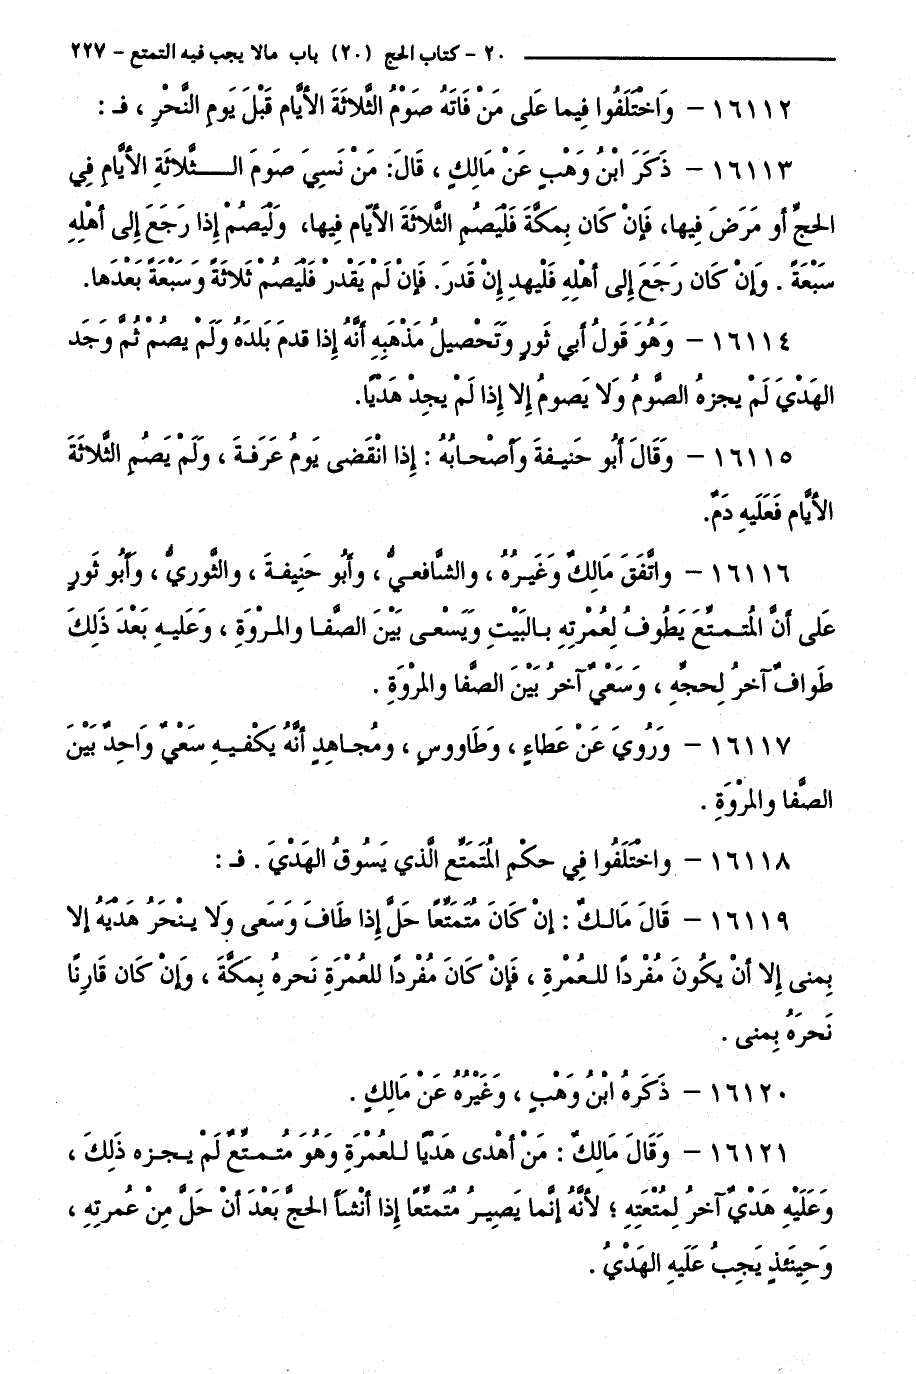 ٢٠ - كتاب الحج (٢٠) باب مالا يجب فيه التمتع - ٢٢٧
١٦١١٢ - وَاخْتَلَفُوا فِيما عَلَى مَنْ فَاتَهُ صَوْمُ الثَّلاثَةَ الأيَّام قَبْلَ يَومِ النَّحْرِ ، فـ :
١٦١١٣ - ذَكَرَ ابْنُ وَهْبٍ عَنْ مَالِكٍ ، قَالَ: مَنْ نَسِيَ صَومَ الـــــثَّلاثَةِ الأيَّامِ فِي
الحجِّ أو مَرَضَ فِيها، فَإنْ كَان بِمكَّةَ فَلْيَصُمِ الثَّلاثَةَ الأيّام فِيها، وَلْيَصُمْ إذا رَجَعَ إلى أهْلِهِ
سَبْعَةً . وَإنْ كَان رَجَعَ إلى أهْلِهِ فَليهدِ إنْ قدَرَ. فَإنْ لَمْ يَقْدرْ فَلْيَصُمْ ثَلاثَةً وَسَبْعَةً بَعْدَها.
١٦١١٤ - وَهُوَ قَولُ أبي ثَورٍ وَتَحْصيلُ مَذْهَبِهِ أنَّهُ إذا قدمَ بَلدَهُ وَلَمْ يصُمْ ثُمَّ وَجَد
الهَدْيَ لَمْ يجزهُ الصَّومُ وَلا يَصومُ إلا إذا لَمْ يجِدْ هَدْيًا.
١٦١١٥ - وَقَالَ أبُو حَنيـفةَ وَأصْحـابُهُ : إذا انْقَضى يَومُ عَرَفـةَ ، وَلَمْ يَصُمِ الثَّلاثَةَ
الأيَّام فَعَلَيهِ دَمٌ.
١٦١١٦ - واتَّفَقَ مَالِكٌ وَغَيـرُهُ ، والشَّافعـيُّ ، وأبُو حَنِيفـةَ ، والثَّوريُّ ، وَأبُو ثَورٍ
عَلى أنَّ المُتـمـتِّعَ يَطُوفُ لِعُمْرتِهِ بـالبَيْتِ وَيَسْعـى بَيْنَ الصفَّـا والمـروْةِ ، وَعَليـهِ بَعْدَ ذَلِكَ
طَوافٌ آخرُ لِحجِّهِ ، وَسَعْيٌ آخرُ بَيْنَ الصفَّا والمرْوَةِ .
١٦١١٧ - وَرُويَ عَنْ عَطاءٍ ، وَطَاووسٍ ، ومُجـاهدٍ أنَّهُ يَكْفـيـهِ سَعْيٌ وَاحِدٌ بَيْنَ
الصفَّا والمرْوَةِ .
١٦١١٨ - واخْتَلَفُوا فِي حكْمِ المُتَمَتِّعِ الَّذي يَسُوقُ الهَدْيَ . فـ :
١٦١١٩ - قَالَ مَالـكٌ : إنْ كَانَ مُتَمَتِّعًا حَلَّ إذا طَافَ وَسَعى وَلا يـنْحَرُ هَدْيَهُ إلا
بِمنى إلا أنْ يكُونَ مُفْردًا للـعُمْرةِ ، فَإنْ كَانَ مُفْردًا للعُمْرَةِ نَحرهُ بِمكَّةَ ، وَإنْ كَان قَارِنًا
نَحرَهُ بِمنى .
١٦١٢٠ - ذَكَرَهُ ابْنُ وَهْبٍ ، وَغَيْرُهُ عَنْ مَالِكٍ .
١٦١٢١ - وَقَالَ مَالِكٌ : مَنْ أهْدى هَدْيًا لـلعُمْرَةِ وَهُوَ مُتـمـتِّعٌ لَمْ يـجـزه ذَلِكَ ،
وَعَلَيْهِ هَدْيٌ آخرُ لِمُتْعَتِهِ ؛ لأنَّهُ إنَّما يَصيـرُ مُتَمتِّعًا إذا أنْشَأ الحجَّ بَعْدَ أنْ حَلَّ مِنْ عُمرتِهِ ،
وَحِينَئذٍ يَجِبُ عَلَيهِ الهَدْيُ .